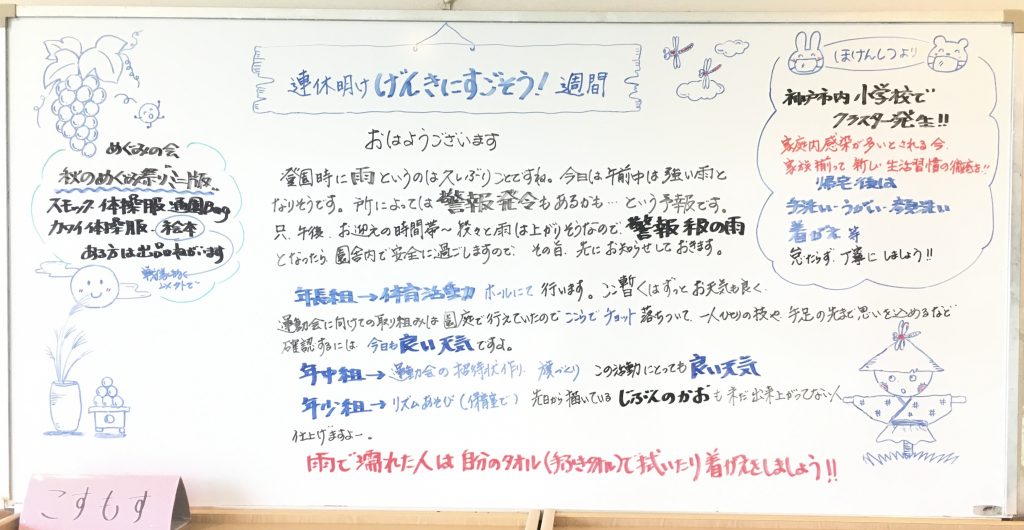 連休明け げんきにすごそう! 週間
おはようございます
登園時に雨というのは久しぶりことですね。今日は午前中は強い雨と
なりそうです。所によっては警報発令もあるかも…という予報です。
只、午後、お迎えの時間帯〜段々と雨は上がりそうなので、警報級の雨
となったら、園舎内で安全に過ごしますので、その旨、先にお知らせしておきます。
年長組→体育活動 ホールにて行います。ここ暫くはずっとお天気も良く、
運動会に向けての取り組みは園庭で行えていたのでここらでチョット落ちついて、一人ひとりの技や、手足の先まで思いを込めるなど
確認するには今日も良い天気ですよ。
年中組→運動会の招待状作り、旗づくり この活動にとっても良い天気
年少組→リズムあそび(保育室で) 先日から描いているじぶんのかおも未だ出来上がってない人
仕上げますよー。
雨で濡れた人は自分のタオル(手ふきタオル)で拭いたり着がえをしましょう!!
めぐみの会
秋のめぐみ祭り ミニ版
スモック 体操服 通園Bag
カワイ体操服 絵本
ある方は出品ねがいます
ほけんしつより
神戸市内 小学校で
クラスター発生!!
家庭内感染が多いとされる今、
家族揃って新しい生活習慣の徹底を!!
帰宅後は
手洗い・うがい・
着がえ 等
怠たらず、丁寧にしましょう!!
こすもす